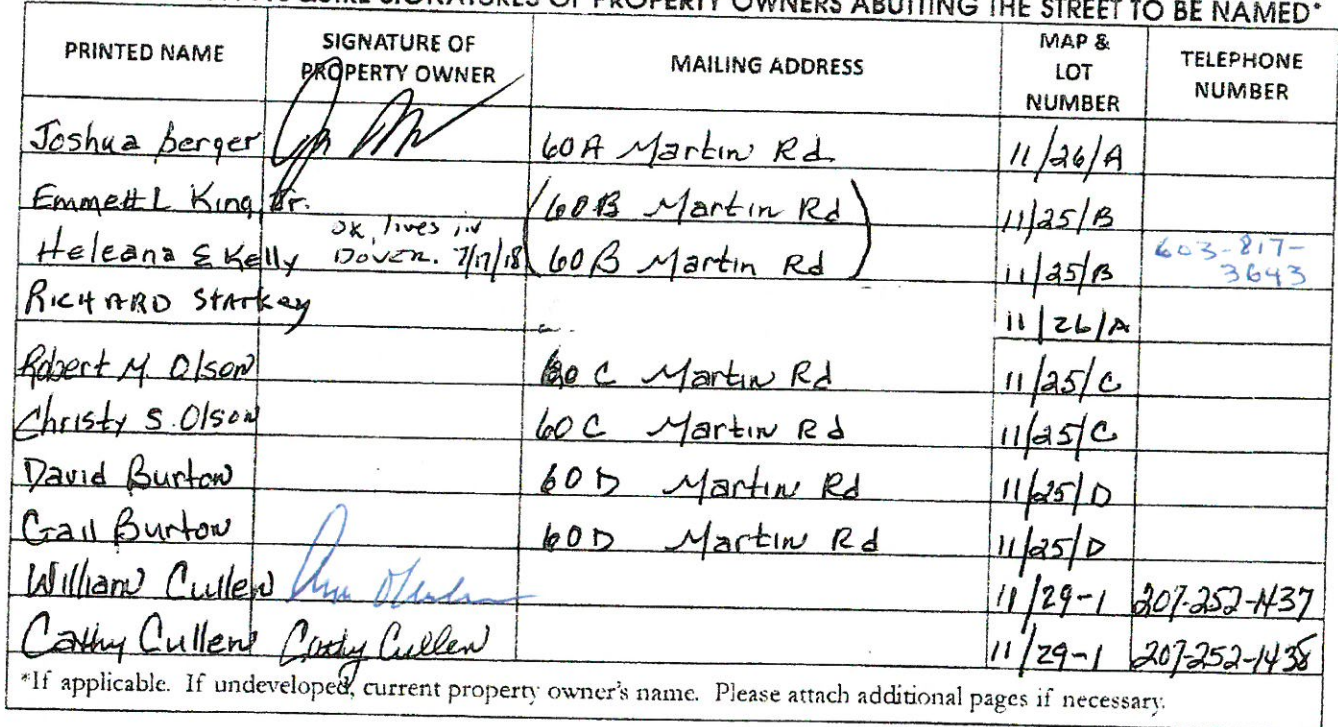 QUIRE SIGNATURES OF PROPERTY OWNERS ABUTTING THE STREET TO BE NAMED*
PRINTED NAME SIGNATURE OF PROPERTY OWNER MAILING ADDRESS MAP & LOT NUMBER TELEPHONE NUMBER
Joshua Berger 60A Martin Rd. 11/26/A
Emmett L King Jr. (60B Martin Rd) 11/25/B
Heleana E Kelly OK, lives in Dover. 7/17/18 (60B Martin Rd) 11/25/B 603-817-3643
RICHARD Starkey 11/26/A
Robert M. Olson 60 C Martin Rd 11/25/C
Christy S. Olson 60C Martin Rd 11/25/C
David Burton 60D Martin Rd 11/25/D
Gail Burton 60D Martin Rd 11/25/D
William Cullen 11/29-1 207-252-1437
Cathy Cullen Cathy Cullen 11/29-1 207-252-1438
*If applicable. If undeveloped, current property owner's name. Please attach additional pages if necessary.